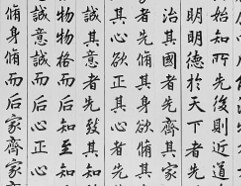 始知所先後則近道
明明德於天下者先
治其國者先齊其家
者先脩其身欲脩其
其心欲正其心者先
誠其意者先致其知
物物格而后知至知
誠意誠而后心正心
脩身脩而后家齊家